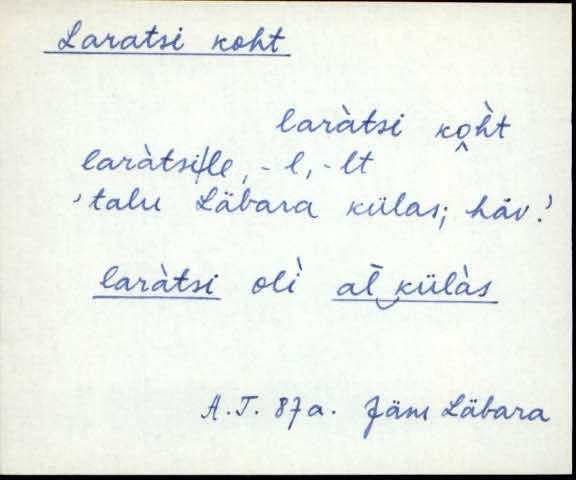 Laratsi koht
laràtsi ko̭h̀t
laràtsi/le, -l, -lt
'talu Läbara külas; häv.'
laràtsi olì al̄‿külàs
A.T. 87a. Jäm Läbara